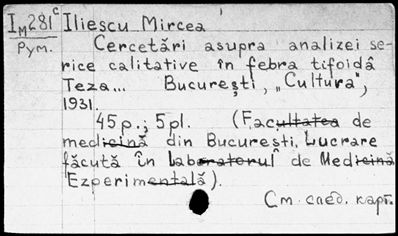 Iм281c Iliescu Mircea
Рум. Cercetări asupra analizei se-
rice calitative în febra tifoidă
Teza... București, „Cultura",
1931.
45p.; 5pl. (Facultatea de
medicină din București. Lucrare
făcută în laboratorul de Medicină
Ezperimentală).
См. след. карт.